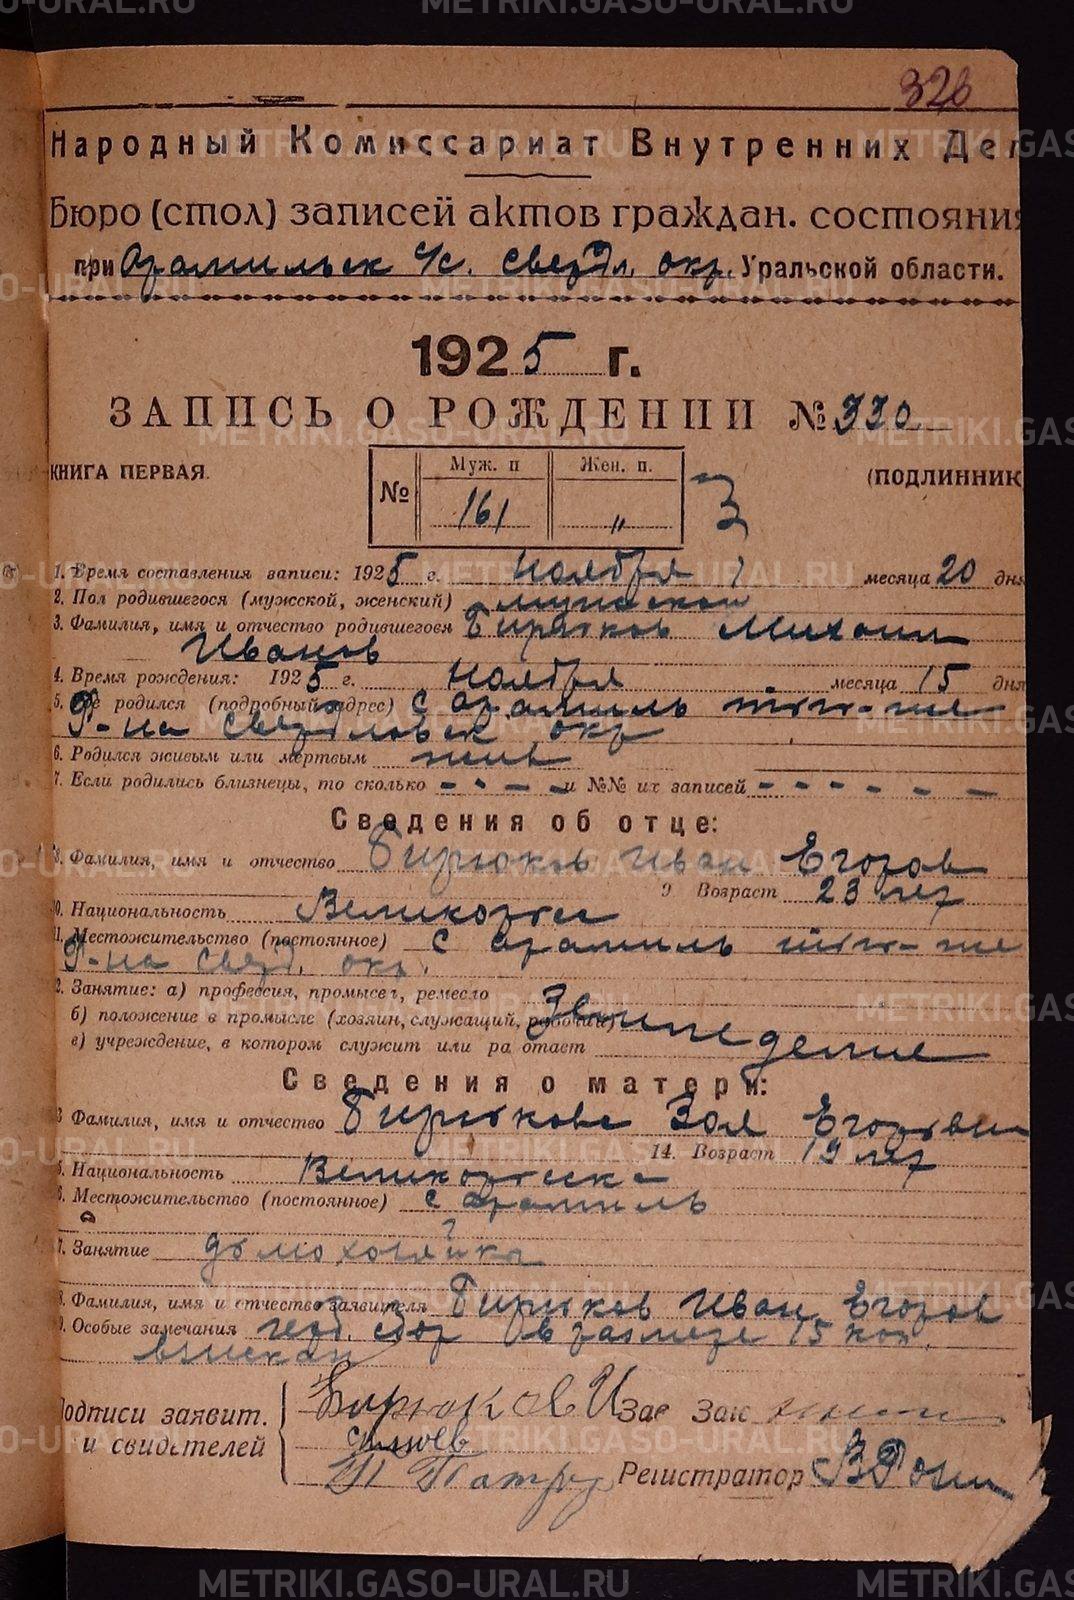 326
Народный Комиссариат Внутренних Дел
Бюро (стол) записей актов граждан. состояния
при Арамильск с/с. Свердл. окр. Уральской области.
1925 г.
ЗАПИСЬ О РОЖДЕНИИ № 330
КНИГА ПЕРВАЯ. (ПОДЛИННИК
№ Муж. п Жен. п.
161 "
1. Время составления записи: 1925 г. Ноября месяца 20 дня
2. Пол родившегося (мужской, женский) мужской
3. Фамилия, имя и отчество родившегося Бирюков Михаил
Иванов
4. Время рождения: 1925 г. Ноября месяца 15 дня
5. Где родился (подробный адрес) С Арамиль того-же
Р-на Свердловск окр
6. Родился живым или мертвым живы
7. Если родились близнецы, то сколько - - - - и №№ их записей - - - - - -
Сведения об отце:
8. Фамилия, имя и отчество Бирюков Иван Егоров
9 Возраст 23 лет
10. Национальность Великорус
11. Местожительство (постоянное) С Арамиль того-же
Р-на Сверд. окр.
12. Занятие: а) профессия, промысел, ремесло
б) положение в промысле (хозяин, служащий, рабочий)
в) учреждение, в котором служит или ра отает
Сведения о матери:
13 Фамилия, имя и отчество Бирюкова Зоя Егоровн
14. Возраст 19 лет
15. Национальность Великоруска
16. Местожительство (постоянное) С Арамиль
17. Занятие домохозяйка
18. Фамилия, имя и отчество заявителя Бирюков Иван Егоров
19. Особые замечания герб. сбор в размере 15 коп.
взыскан
Подписи заявит. Бирюков И Зав Заг
и свидетелей
Регистратор
METRIKI.GASO-URAL.RU